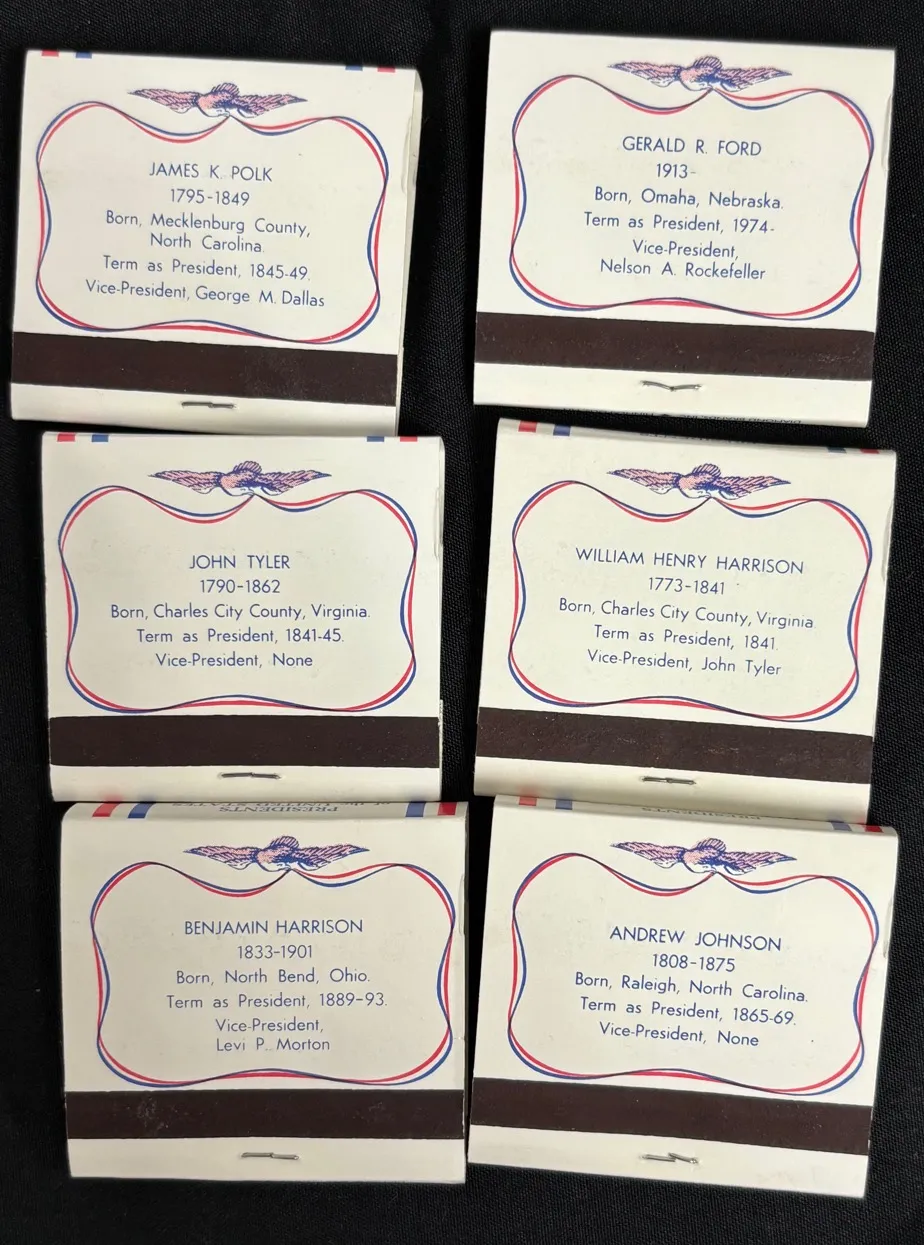 JAMES K. POLK
1795-1849
Born, Mecklenburg County,
North Carolina.
Term as President, 1845-49.
Vice-President, George M. Dallas
GERALD R. FORD
1913-
Born, Omaha, Nebraska.
Term as President, 1974-
Vice-President,
Nelson A. Rockefeller
JOHN TYLER
1790-1862
Born, Charles City County, Virginia.
Term as President, 1841-45.
Vice-President, None
WILLIAM HENRY HARRISON
1773-1841
Born, Charles City County, Virginia.
Term as President, 1841.
Vice-President, John Tyler
PRESIDENTS
UNITED STATES
BENJAMIN HARRISON
1833-1901
Born, North Bend, Ohio.
Term as President, 1889-93.
Vice-President,
Levi P. Morton
PRESIDENTS
ANDREW JOHNSON
1808-1875
Born, Raleigh, North Carolina.
Term as President, 1865-69.
Vice-President, None